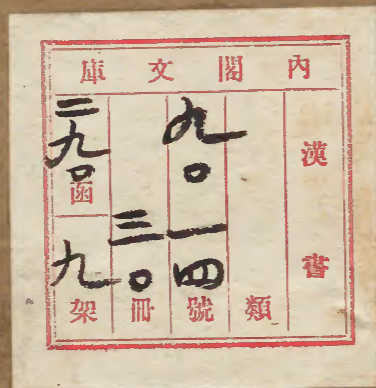 內閣文庫
漢書
類
九〇一四號
三〇冊
二九〇函
九架